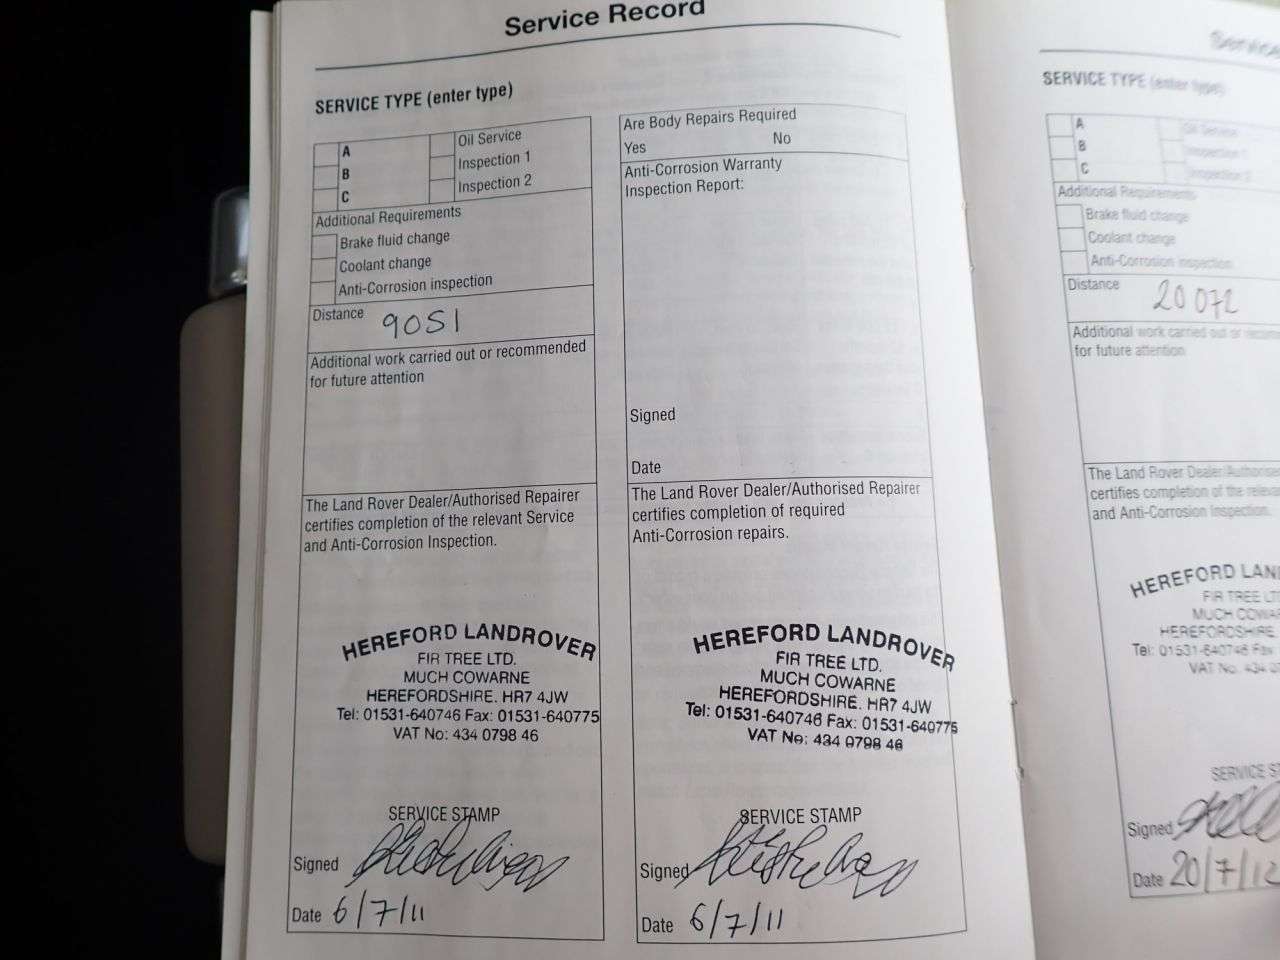 Service Record
SERVICE TYPE (enter type)
A
B
C
Oil Service
Inspection 1
Inspection 2
Additional Requirements
Brake fluid change
Coolant change
Anti-Corrosion inspection
Distance 9051
Additional work carried out or recommended
for future attention
The Land Rover Dealer/Authorised Repairer
certifies completion of the relevant Service
and Anti-Corrosion Inspection.
HEREFORD LANDROVER
FIR TREE LTD.
MUCH COWARNE
HEREFORDSHIRE. HR7 4JW
Tel: 01531-640746 Fax: 01531-640775
VAT No: 434 0798 46
SERVICE STAMP
Signed
Date 6/7/11
Are Body Repairs Required
Yes No
Anti-Corrosion Warranty
Inspection Report:
Signed
Date
The Land Rover Dealer/Authorised Repairer
certifies completion of required
Anti-Corrosion repairs.
HEREFORD LANDROVER
FIR TREE LTD.
MUCH COWARNE
HEREFORDSHIRE. HR7 4JW
Tel: 01531-640746 Fax: 01531-640775
VAT No: 434 0798 46
SERVICE STAMP
Signed
Date 6/7/11
SERVICE TYPE (enter type)
A
B
C
Oil Service
Inspection 1
Inspection 2
Additional Requirements
Brake fluid change
Coolant change
Anti-Corrosion inspection
Distance 20072
Additional work carried out or
for future attention
The Land Rover
certifies completion of the
and Anti-Corrosion Inspection.
HEREFORD
FIR TREE
MUCH
HEREFORDSHIRE
Tel: 01531-640746 Fax
VAT No.
SERVICE
Signed
Date 20/7/12